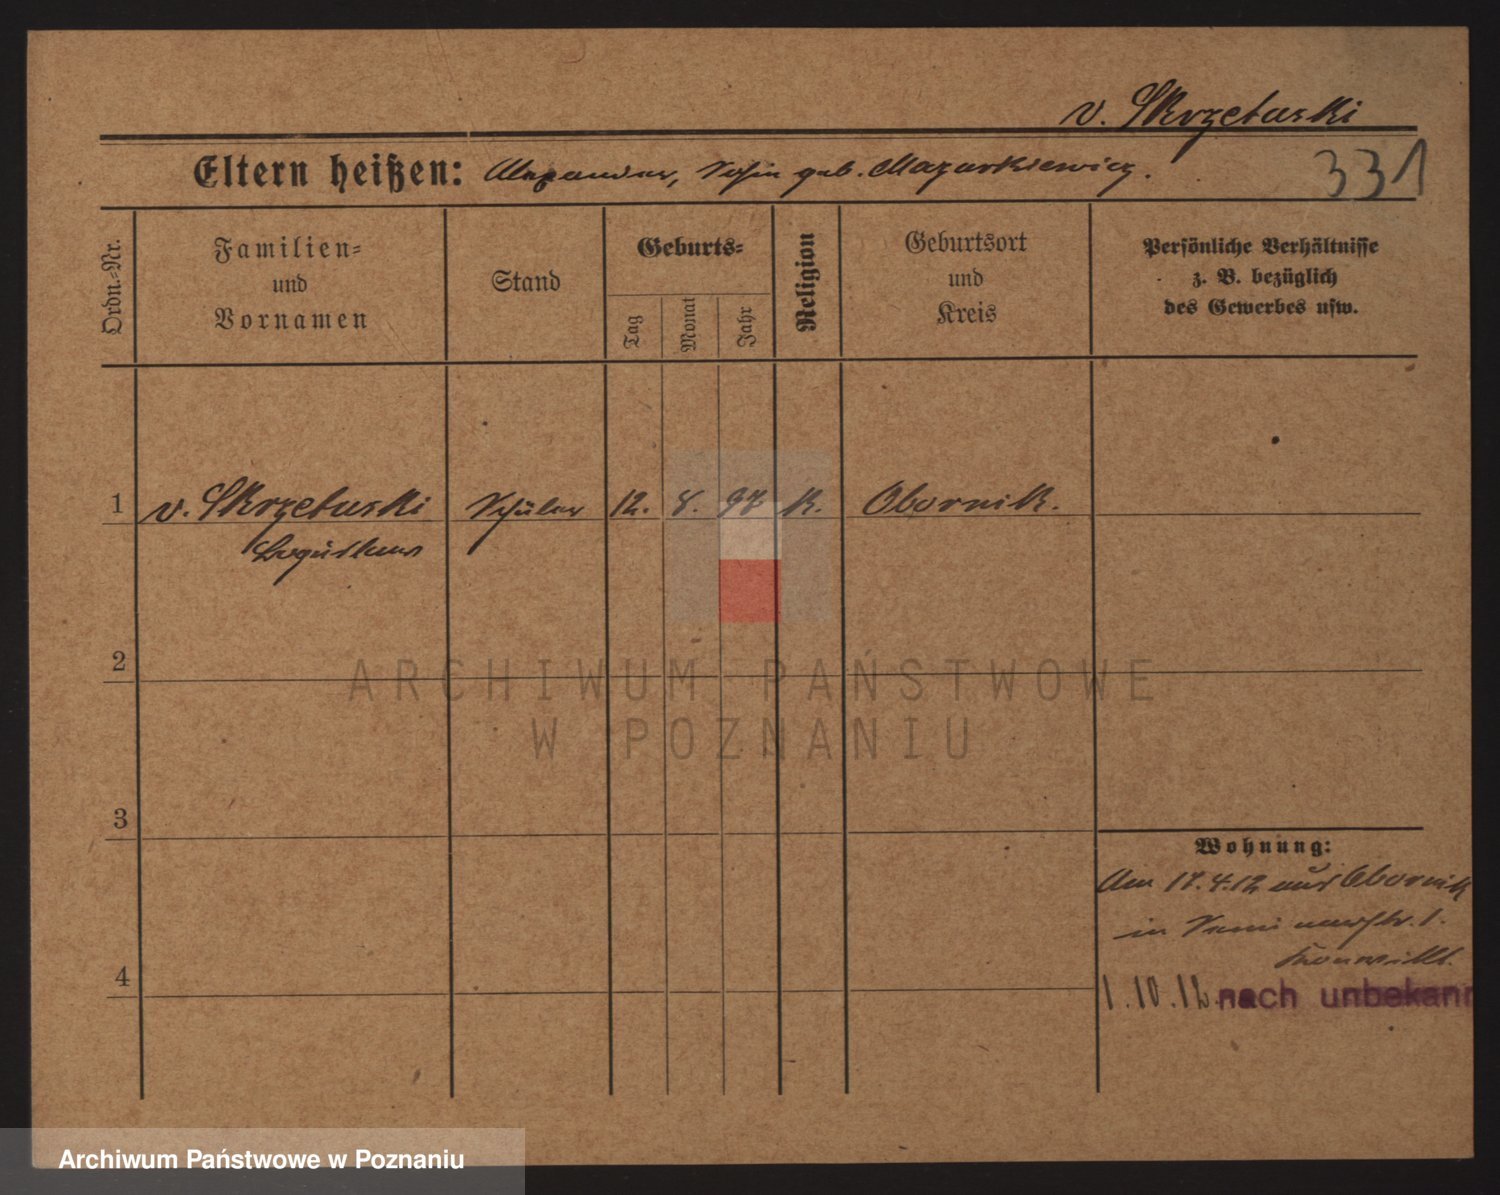 v. Skrzetuski
Eltern heißen: Alexander, geb. Mazurkiewicz.
331
Ordn.-Nr.
Familien-
und
Vornamen
Stand
Geburts-
Tag
Monat
Jahr
Religion
Geburtsort
und
Kreis
Persönliche Verhältnisse
z. B. bezüglich
des Gewerbes usw.
1 v. Skrzetuski Schüler 12. 8. 97 K. Obornik.
Boguslaus
2
ARCHIWUM PAŃSTWOWE
W POZNANIU
3
Wohnung:
Am 17.4.12 aus Obornik
in
4
1.10.12 nach unbekann
Archiwum Państwowe w Poznaniu